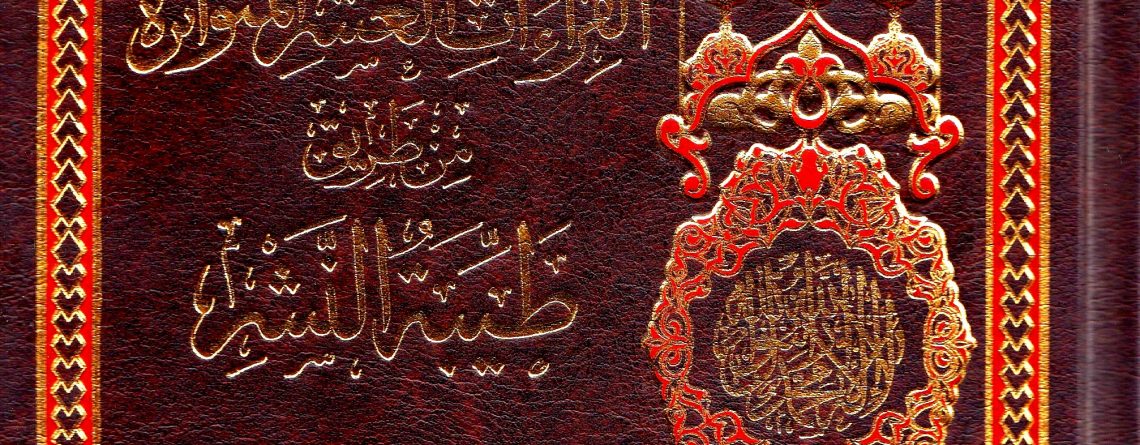 القِرَاءَاتِ العَشْرِ المُتَوَاتِرَةِ
مِنْ طَرِيقِ
طَيِّبَةِ النَّشْرِ